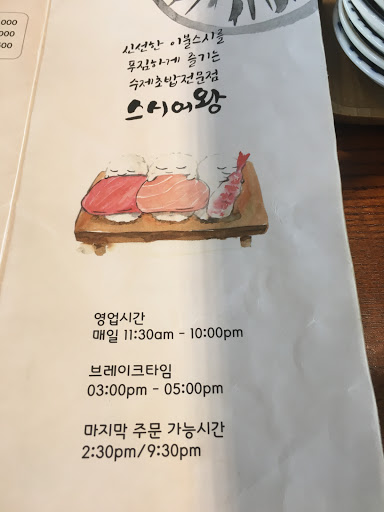 000
000
500
신선한 이불스시를
푸짐하게 즐기는
수제초밥전문점
스시어왕
영업시간
매일 11:30am - 10:00pm
브레이크타임
03:00pm - 05:00pm
마지막 주문 가능시간
2:30pm/9:30pm